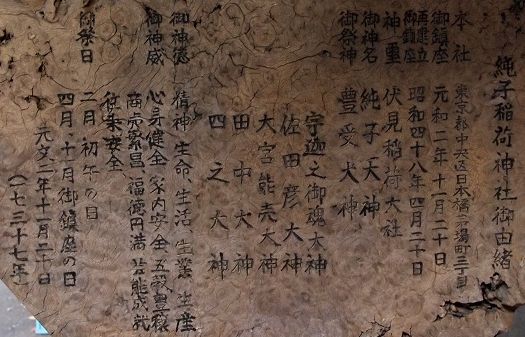 純子稲荷神社御由緒
本社 東京都中央区日本橋
御鎮座 元和二年十一月二十日
再建立
御鎮座 昭和四十八年四月二十日
神璽 伏見稲荷大社
御神名 純子天神
御祭神 豊受大神
宇迦之御魂大神
佐田彦大神
大宮能売大神
田中大神
四之大神
御神徳 精神 生命 生活 生業 生産
御神威 心身健全 家内安全 五穀豊穣
商売繁昌、福徳円満 芸能成就
往来安全
御祭日 二月 初午の日
四月・十月御鎮座の日
元文二年十一月二十日
(一七三十七年)